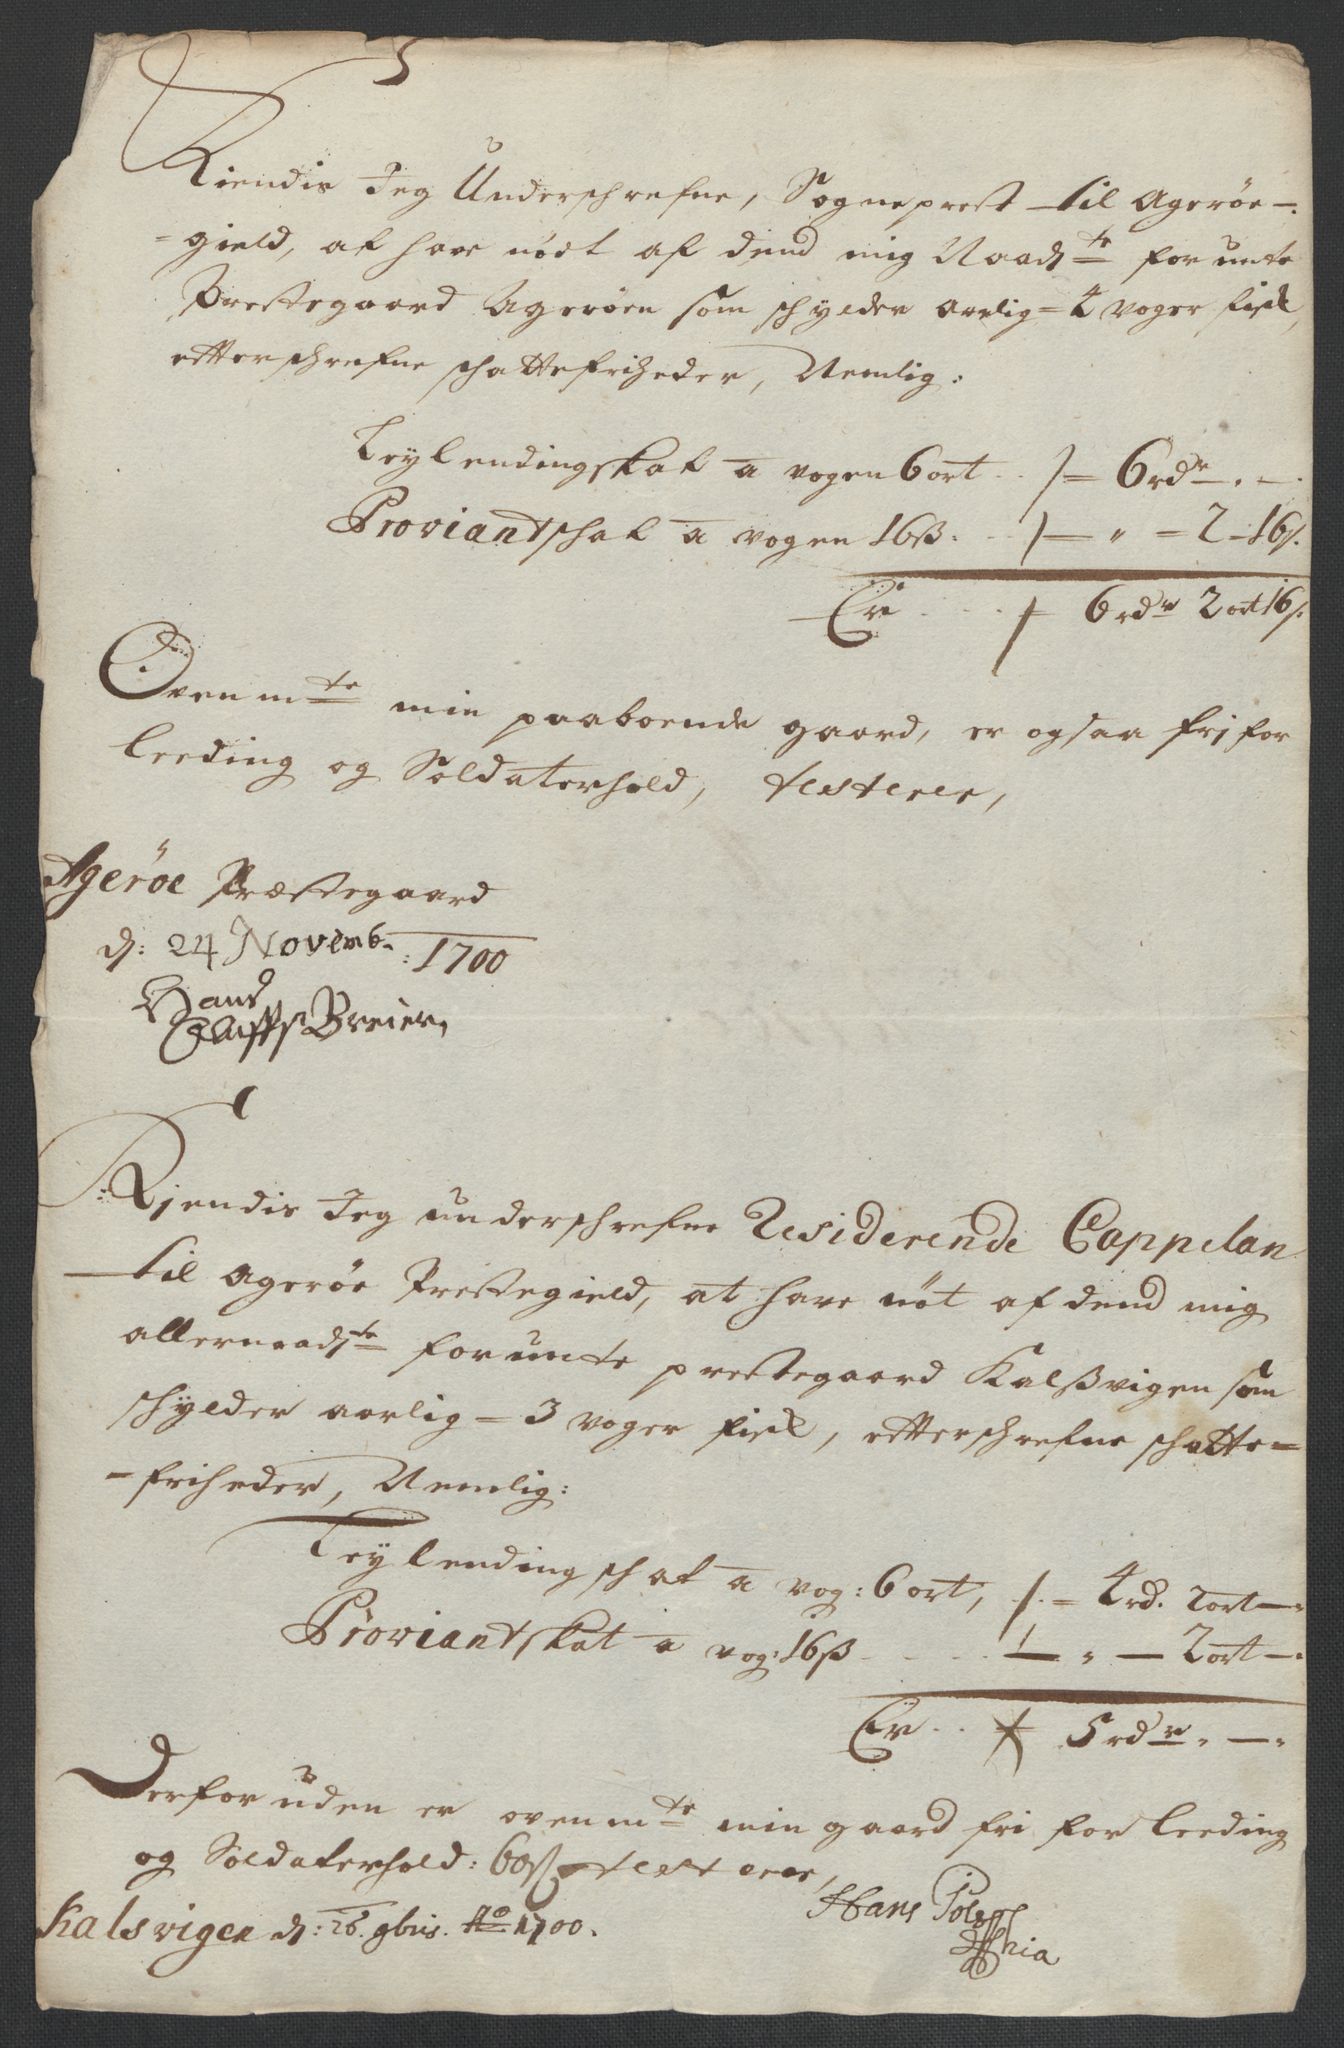 Kiendis Jeg Underschrefne, Sogneprest til Agerøe-
=gield, at have nødt af dend mig Naadste forunte
Prestegaard Agerøen som schylder aarlig = 4 voger fisk,
etterschrefne schattefriheder, Nemlig:
Leylendingskat a vogen 6 ort . . /= 6 rdr - . -
Proviantschat a vogen 16 ß. . . /= " = 2 - 16 ß.
Er . . . / 6 rdr 2 ort 16 ß.
Ovenmte min paaboende gaard, er ogsaa fri for
Leeding og Soldaterhold, testerer,
Agerøe Præstegaard
d: 24 Novemb. : 1700
Hans
Olufss Breier,
Kiendis Jeg underschrefne Residerende Cappelan
til Agerøe Prestegield, at have nøt af dend mig
allernaadste forunte prestegaard Kalßvigen som
schylder aarlig = 3 voger fisk, etterschrefne schatte=
=friheder, Nemlig:
Leylendingschat a vog: 6 ort, /. = 4 rd. 2 ort - "
Proviantskat a vog: 16 ß . . . . / - " - 2 ort - "
Er . . / 5 rdr . - .
Derforuden er ovenmte min gaard fri for Leeding
og Soldaterhold: testerer,
Kalsvigen d: 26. 9bris. Ao 1700.
Hans